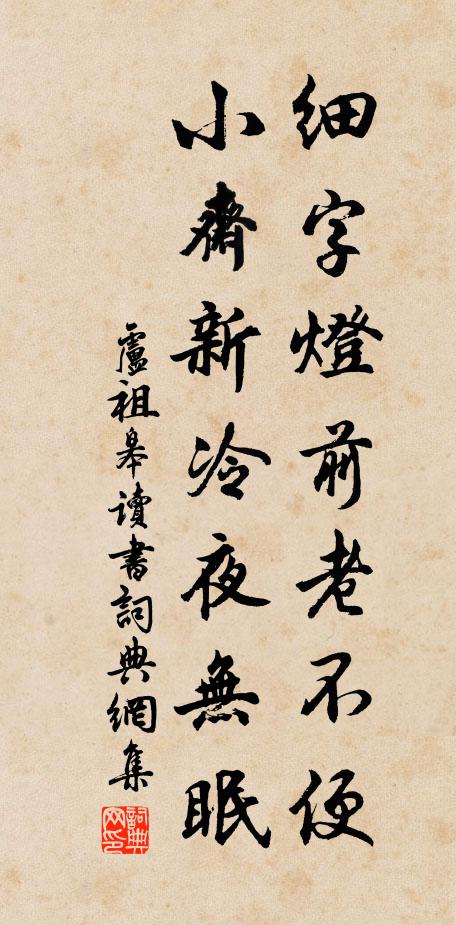 細字燈前老不便
小齋新冷夜無眠
盧祖皋讀書詞典網集
詞典网印